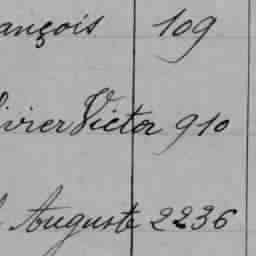 ançois 109
ivier Victor 910
Auguste 2236